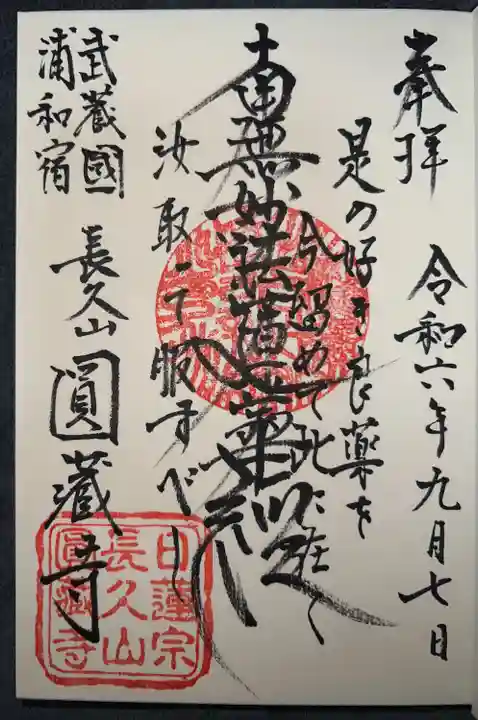 奉拝 令和六年九月七日
是の好き良薬を
今留めて此に在く
南無妙法蓮華経
汝取って服すべし
長久山 圓蔵寺
武蔵國
浦和宿
日蓮宗
長久山
圓蔵寺